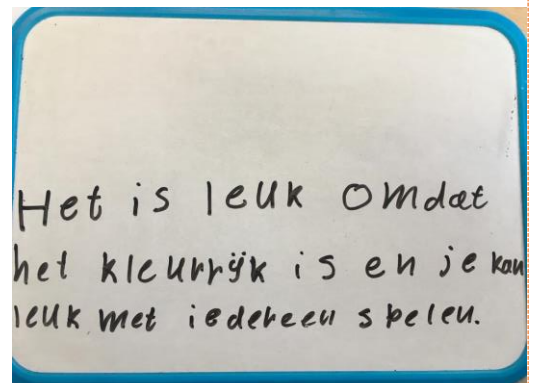 Het is leuk omdat
het kleurrijk is en je kan
leuk met iedereen spelen.